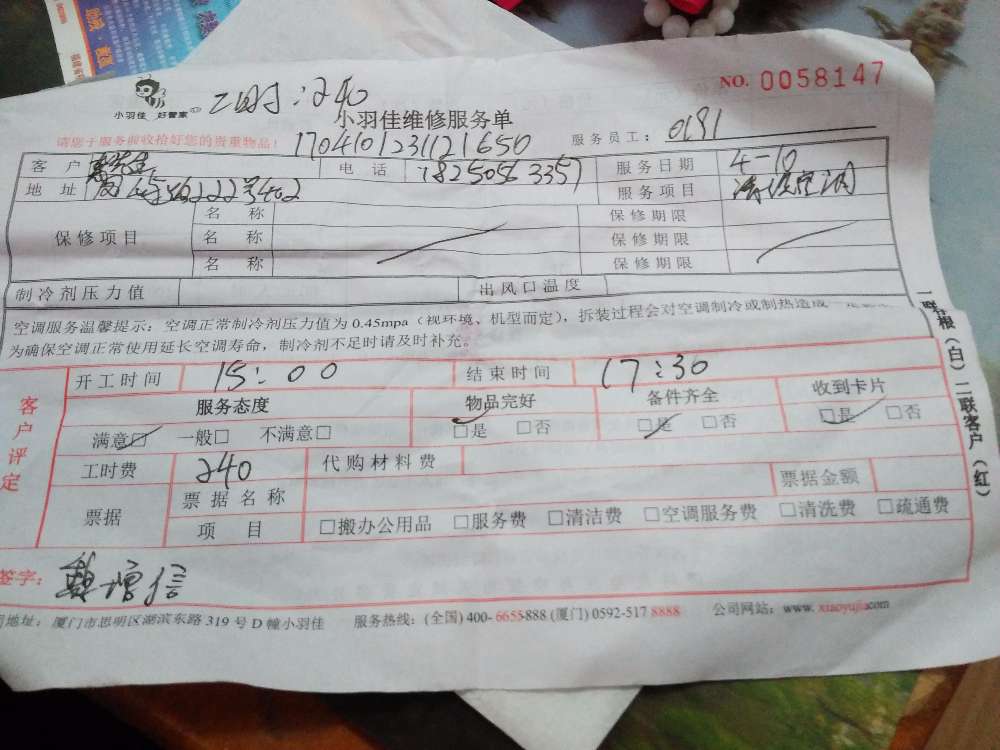 NO. 0058147
小羽佳 好管家
:240
小羽佳维修服务单
请您于服务前收拾好您的贵重物品!
1704101231121650
服务员工: 0191
客户 电话 18250563357 服务日期 4-10
地址 222号402 服务项目 清洗空调
保修项目
名称 保修期限
名称 保修期限
名称 保修期限
制冷剂压力值 出风口温度
空调服务温馨提示:空调正常制冷剂压力值为0.45mpa(视环境、机型而定),拆装过程会对空调制冷或制热造成
为确保空调正常使用延长空调寿命,制冷剂不足时请及时补充。
一联存根(白)二联客户(红)
客户评定
开工时间 15:00 结束时间 17:30
服务态度 物品完好 备件齐全 收到卡片
满意□ 一般□ 不满意□ □是 □否 □是 □否 □是 □否
工时费 240 代购材料费
票据 票据名称 票据金额
项目 □搬办公用品 □服务费 □清洁费 □空调服务费 □清洗费 □疏通费
签字: 增信
地址:厦门市思明区湖滨东路319号D幢小羽佳 服务热线:(全国)400-6655-888 (厦门)0592-517 8888 公司网站:www.xiaoyujia.com